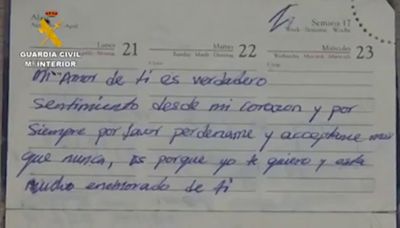 GUARDIA CIVIL
Mº INTERIOR
Semana 17
Lunes 21
Martes 22
Miércoles 23
Mi Amor de ti es verdadero
Sentimiento desde mi corazon y por
Siempre por favor perdename y acceptame mas
que nunca, es porque yo te quiero y esta
mucho enemorado de ti